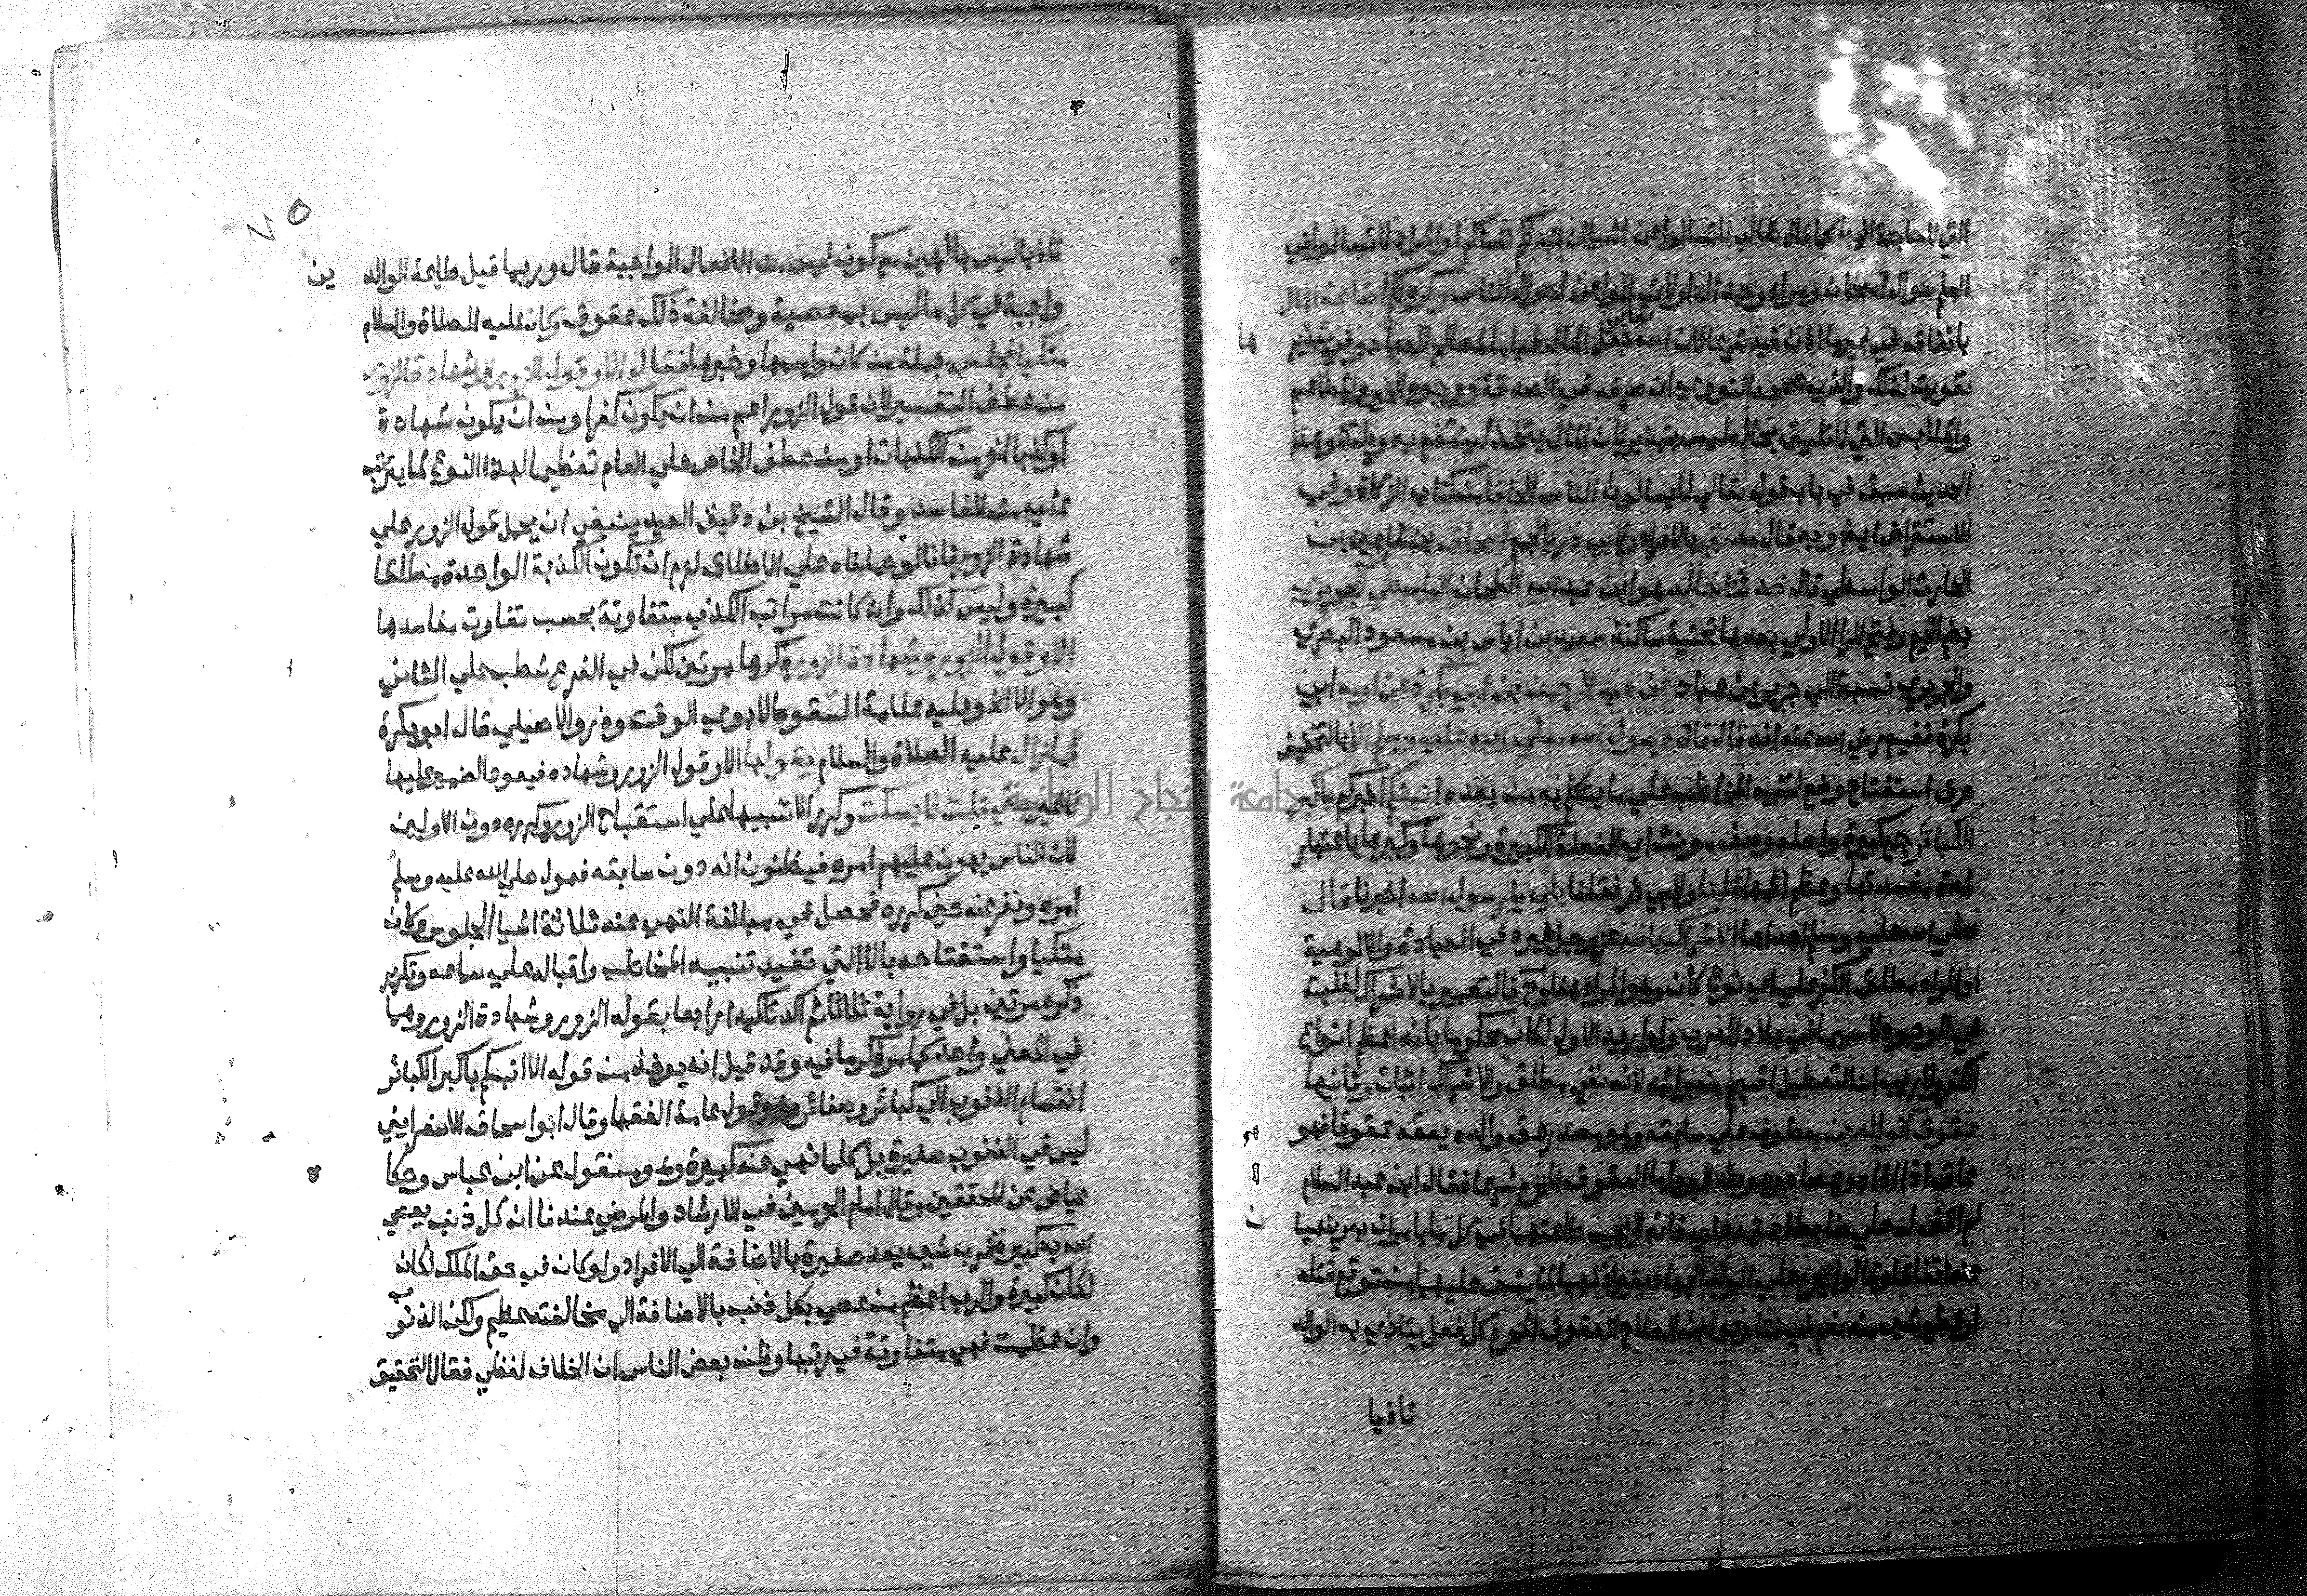 التي لا حاجة اليها كما قال تعالي لا تسالوا عن اشيا ان تبدلكم تسؤكم او المراد لا تسالوا في
العلم سوال امتحان ومراء وجدال او لا تسالوا عن احوال الناس وكره لكم اضاعة المال
بانفاقه في غير ما اذن فيه شرعا لان الله تعالي جعل المال قياما لمصالح العباد وفي تبذيرها
تفويت لذلك والذي صححه النووي ان صرفه في الصدقة ووجوه الخير والمطاعم
والملابس التي لا تليق بحاله ليس بتبذير لان المال يتخذ لينتفع به ويلتذ وهذا
الحديث سبق في باب قوله تعالي لا يسالون الناس الحافا من كتاب الزكاة وفي
الاستقراض ايضا وبه قال حدثني بالافراد ولابي ذر بالجمع اسحاق بن شاهين بن
الحارث الواسطي قال حدثنا خالد هو ابن عبد الله الطحان الواسطي الجريري
بضم الجيم وفتح الرا الاولي بعدها تحتية ساكنة سعيد بن اياس بن مسعود البصري
والجريري نسبة الي جرير بن عباد عن عبد الرحمن بن ابي بكرة عن ابيه ابي
بكرة نفيع رضي الله عنه انه قال قال رسول الله صلي الله عليه وسلم الا بالتخفيف
حرف استفتاح وضع لتنبيه المخاطب علي ما يتكلم به من بعده انبيكم اخبركم باكبر
الكبائر جمع كبيرة واصله وصف مونث اي الفعلة الكبيرة ونحوها وكبرها باعتبار
شدة مفسدتها وعظم اثمها قلنا ولابي ذر فقلنا بلي يا رسول الله اخبرنا قال
صلي الله عليه وسلم احداها الاشراك بالله عز وجل غيره في العبادة والالوهية
او المراد مطلق الكفر علي اي نوع كان وهو المراد هنا فالتعبير بالاشراك لغلبته
في الوجود لا سيما في بلاد العرب ولو اريد الاول لكان محكوما بانه اعظم انواع
الكفر ولا ريب ان التعطيل اقبح منه واشد لانه نفي مطلق والاشراك اثبات وثانيها
عقوق الوالدين معطوف علي سابقه وهو مصدر عق والده يعقه عقوقا فهو
عاق اذا اذاه وعصاه وهو ضد البر واما العقوق المحرم شرعا فقال ابن عبد السلام
لم اقف له علي ضابط اعتمد عليه فانه لا يجب طاعتهما في كل ما يامران به وينهيان
عنه اتفاقا وقالوا يحرم علي الولد الجهاد بغير اذنهما لما يشق عليهما من توقع قتله
او قطع شي منه نعم في فتاوي ابن الصلاح العقوق المحرم كل فعل يتاذي به الوالد
تاذيا
٧٥
تاذيا ليس بالهين مع كونه ليس من الافعال الواجبة قال وربما قيل طاعة الوالدين
واجبة في كل ما ليس بمعصية ومخالفة ذلك عقوق وكان عليه الصلاة والسلام
متكيا فجلس جملة من كان واسمها وخبرها فقال الا وقول الزور وشهادة الزور
من عطف التفسير لان قول الزور اعم من ان يكون كفرا ومن ان يكون شهادة
او كذبا اخر من الكذبات او من عطف الخاص علي العام تعظيما لهذا النوع لما يترتب
عليه من المفاسد وقال الشيخ بن دقيق العيد ينبغي ان يحمل قول الزور علي
شهادة الزور فانا لو حملناه علي الاطلاق لزم ان تكون الكذبة الواحدة مطلقا
كبيرة وليس كذلك وان كانت مراتب الكذب متفاوتة بحسب تفاوت مفاسدها
الا وقول الزور وشهادة الزور ذكرها مرتين لكن في الفرع شطب علي الثاني
وهو الا الخ وعليه علامة السقوط لابوي الوقت وذر والاصيلي قال ابو بكرة
فما زال عليه الصلاة والسلام يقولها الا وقول الزور وشهاده فيعود الضمير عليها
لا غير حتي قلت لا يسكت وكرر الا تنبيها علي استقباح الزور وكرره دون الاولين
لان الناس يهون عليهم امره فيظنون انه دون سابقه فهول صلي الله عليه وسلم
امره ونفر عنه حين كرره فحصل في مبالغة النهي عنه ثلاثة اشيا الجلوس وكان
متكيا واستفتاحه بالا التي تفيد تنبيه المخاطب واقباله علي سماعه وتكرير
ذكره مرتين بل في رواية ثلاثا ثم اكد تاكيدا رابعا بقوله الزور وشهادة الزور وهما
في المعني واحد كما مر ذكر ما فيه وقد قيل انه يوخذ من قوله الا انبيكم باكبر الكبائر
انقسام الذنوب الي كبائر وصغائر وهو قول عامة الفقها وقال ابو اسحاق الاسفرايني
ليس في الذنوب صغيرة بل كلما نهي عنه كبيرة وهو منقول عن ابن عباس وحكا
عياض عن المحققين وقال امام الحرمين في الارشاد والمرضي عندنا ان كل ذنب يعصي
الله به كبيرة فرب شي يعد صغيرة بالاضافة الي الافراد ولو كان في حق الملك لكان
لكان كبيرة والرب اعظم من عصي بكل ذنب بالاضافة الي مخالفته عظيم ولكن الذنوب
وان عظمت فهي متفاوتة في رتبها وظن بعض الناس ان الخلاف لفظي فقال التحقيق
جامعة النجاح الوطنية